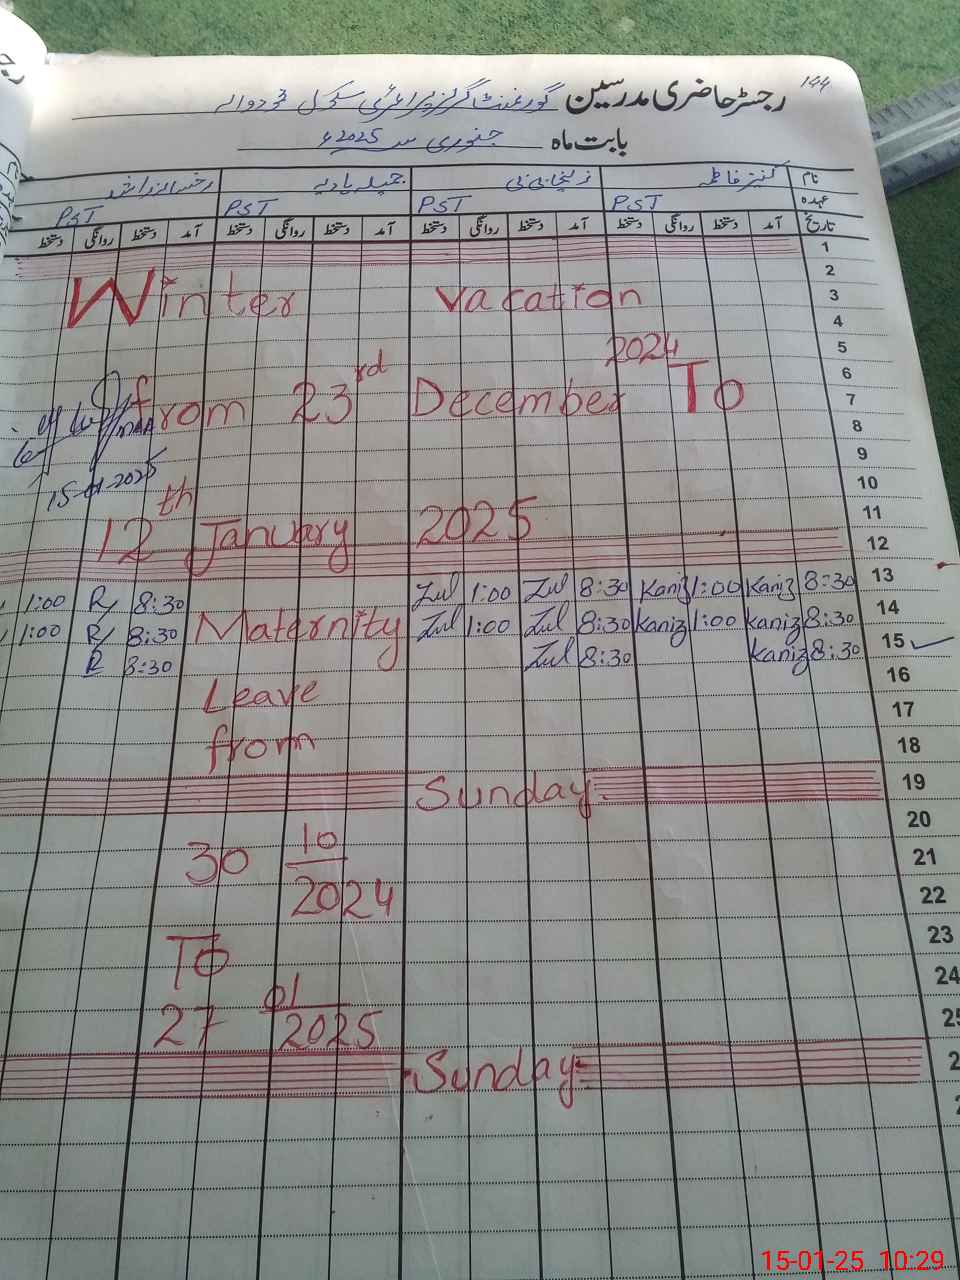 144
رجسٹر حاضری مدرسین گورنمنٹ گرلز پرائمری سکول
بابت ماہ جنوری سنہ 2025ء
نام کنیز فاطمہ زلیخا بی بی جمیلہ ہادیہ
عہدہ PST PST PST PST
تاریخ آمد دستخط روانگی دستخط آمد دستخط روانگی دستخط آمد دستخط روانگی دستخط آمد دستخط روانگی دستخط
1
2
Winter Vacation 3
4
2024 5
6
from 23rd December To 7
8
9
15-01-2025 10
11
12th January 2025 12
1:00 R 8:30 Zul 1:00 Zul 8:30 Kaniz 1:00 Kaniz 8:30 13
1:00 R 8:30 Maternity Zul 1:00 Zul 8:30 Kaniz 1:00 Kaniz 8:30 14
R 8:30 Zul 8:30 Kaniz 8:30 15
Leave 16
17
from 18
Sunday 19
20
30 10 21
2024 22
23
To 24
27 01 25
2025
Sunday 2
2
15-01-25 10:29